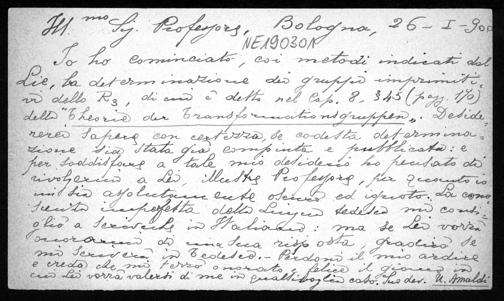 Ill.mo Sig. Professore, Bologna, 26-I-900
NE190301
Io ho cominciato, coi metodi indicati dal
Lie, la determinazione dei gruppi imprimiti-
vi dello R3, di cui è detto nel Cap. 8, § 45 (pag. 170)
della "Theorie der Transformationsgruppen„. Deside-
rerei sapere con certezza se codesta determina-
zione sia stata già compiuta e pubblicata: e
per soddisfare a tale mio desiderio ho pensato di
rivolgermi a Lei illustre Professore, per quanto io
mi sia assolutamente oscuro ed ignoto. La cono-
scenza imperfetta della lingua tedesca mi consi-
gliò a scriverle in Italiano: ma se Lei vorrà
onorarmi di una sua risposta, gradirò se
mi scriverà in Tedesco. Perdoni il mio ardire
e creda che mi terrò onorato e felice il giorno in
cui Lei vorrà valersi di me in qualsivoglia cosa. Suo dev. U. Amaldi